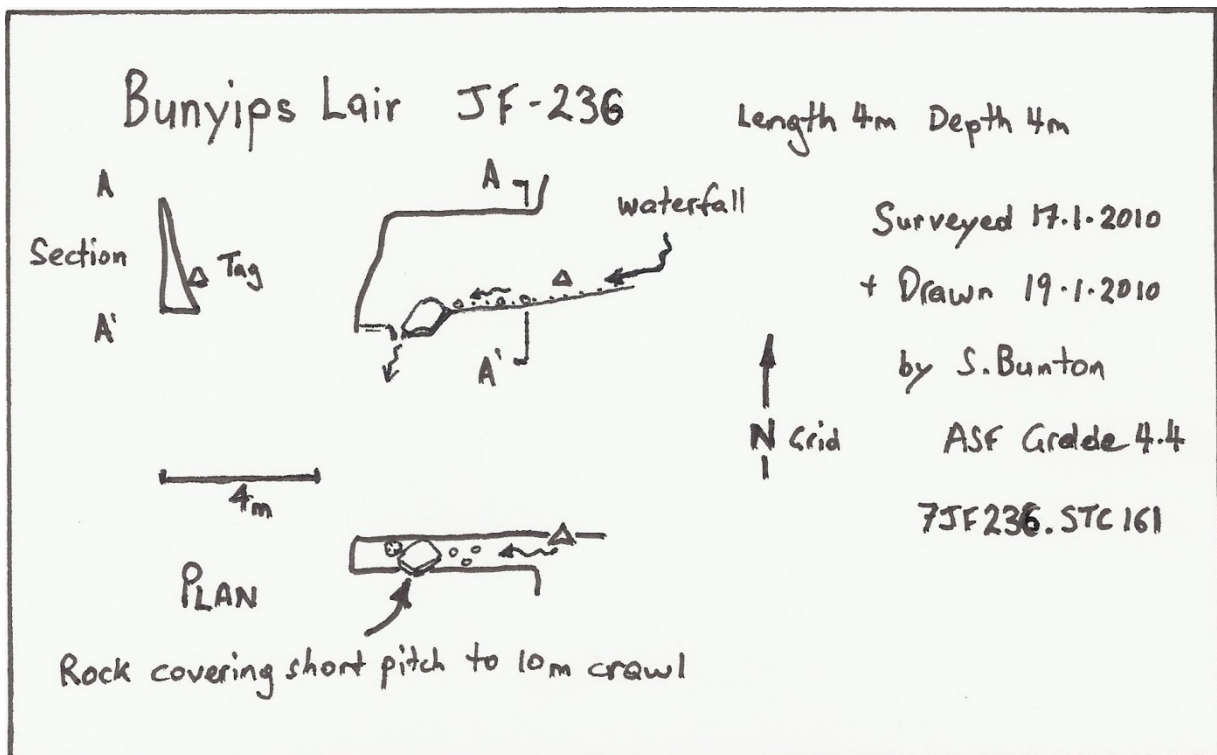 Bunyips Lair JF-236
Length 4m Depth 4m
A
Section
A'
Tag
A
waterfall
A'
Surveyed 17.1.2010
+ Drawn 19.1.2010
by S.Bunton
N Grid
ASF Gradde 4.4
7JF236.STC161
4m
PLAN
Rock covering short pitch to 10m crawl